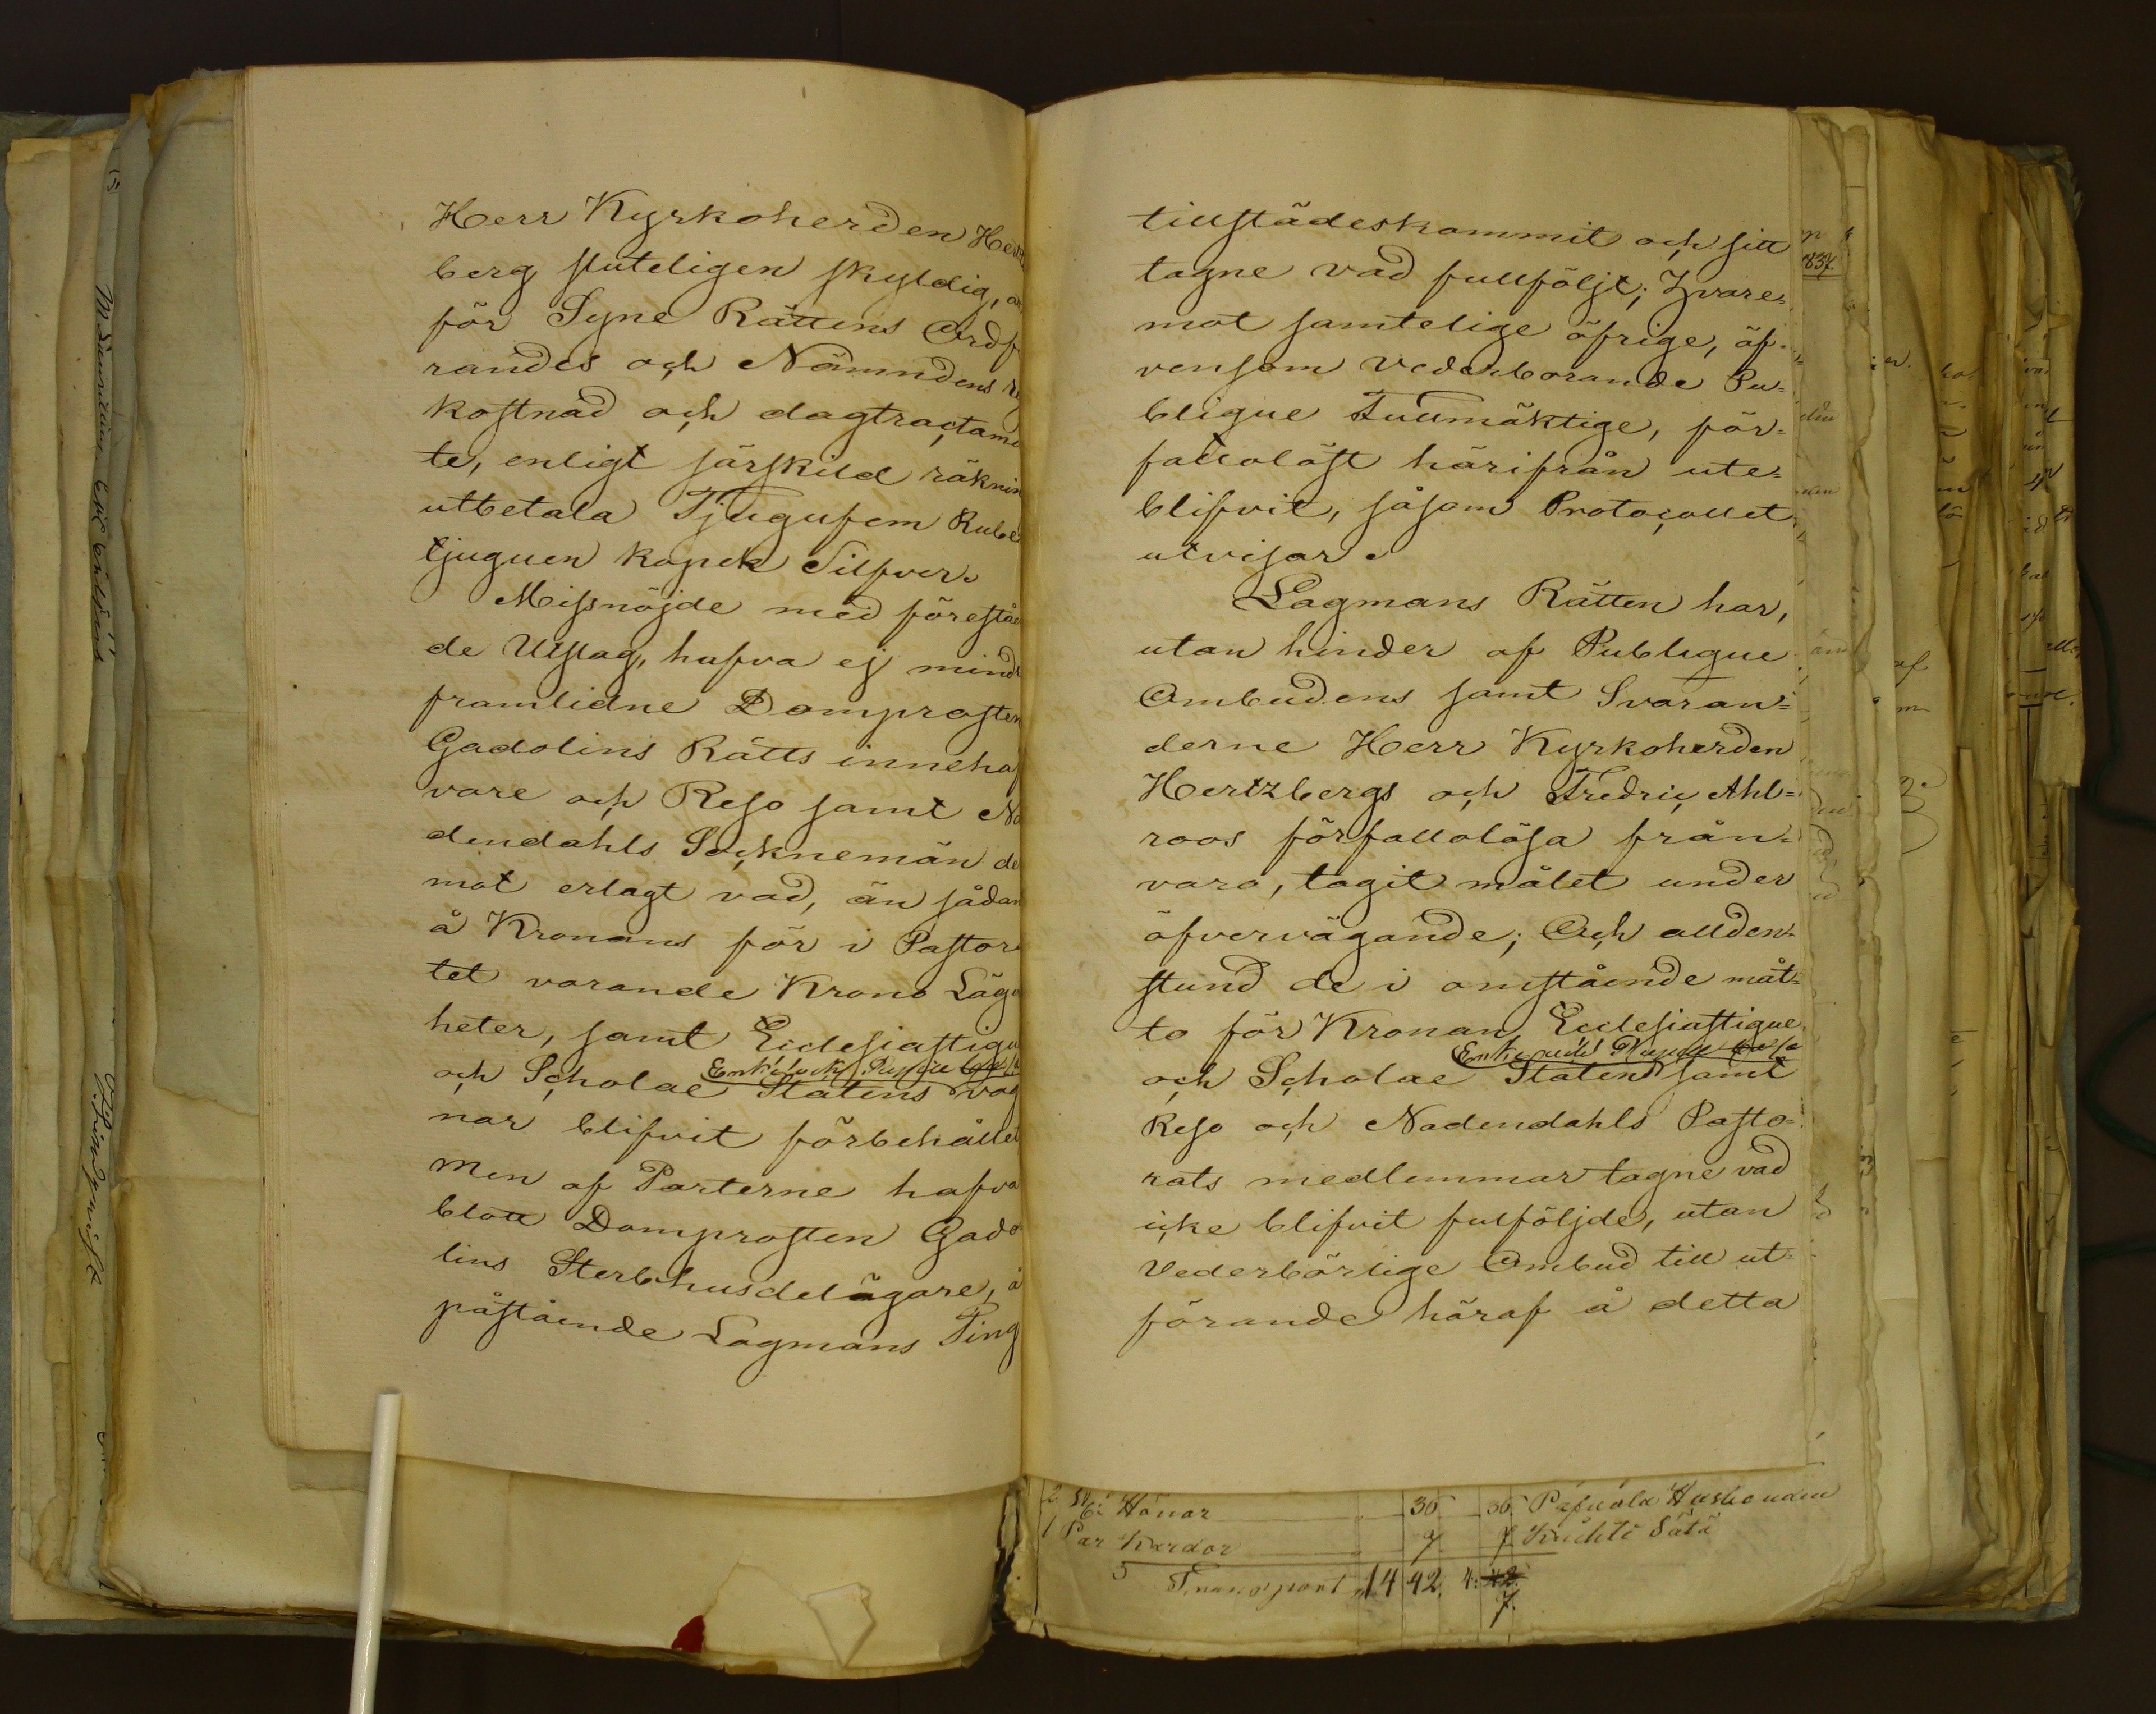 Herr Kyrkoherden Hertz
berg sluteligen skyldig,
för Syne Rättens Ordf
randes och Nämndens
kostnad och dagtractame
te, enligt särskild räknin
utbetala Tjugufem Rube
tjuguen kopek Silfver.
Missnöjde med förestån
de Utslag, hafva ej mind
framlidne Domprosten
Gadolins Rätts innehaf
vare och Reso samt Nå
dendahls Socknemän de
mot erlagt vad, än sådan
å Kronans för i Pastora
tet varande Krono Läge
heter, samt Ecclesiastique
Enke
och Scholae Statens väg
nar blifvit förbehållet
Men af Parterne hafva
blott Domprosten Gado
lins Sterbhusdelägare, å
påstående Lagmans Ting
tillstädeskommit och sitt
tagne vad fullföljt; hvare=
mot samtelige öfrige, äf=
vensom Vederborande Pu=
blique Fullmäktige, för=
fallolöst härifrån ute=
blifvit, såsom Protocollet
utvisar.
Lagmans Rätten har,
utan hinder af Publique
Ombudens samt Svaran=
derne Herr Kyrkoherden
Hertzbergs och Fredric Ahl=
roos förfallolösa från=
varo, tagit målet under
öfvervägande; Och allden=
stund de i omstående måt=
to för Kronan, Ecclesiastique
Enke
och Scholae Staten samt
Reso och Nadendahls Pasto=
rats medlemmar tagne vad
icke blifvit fulföljde, utan
Vederbörlige Ombud till ut=
förande häraf å detta
837
2 St: Hönor 35 35
1 Par Kardor 7 7
Transport 14 42. 4: 42.
7.